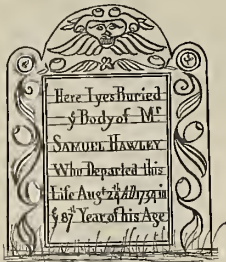 Here Lyes Buried
ẙ Body of Mr
SAMUEL HAWLEY
Who Departed this
Life Augt 24th AD 1734 in
ẙ 87th Year of his Age